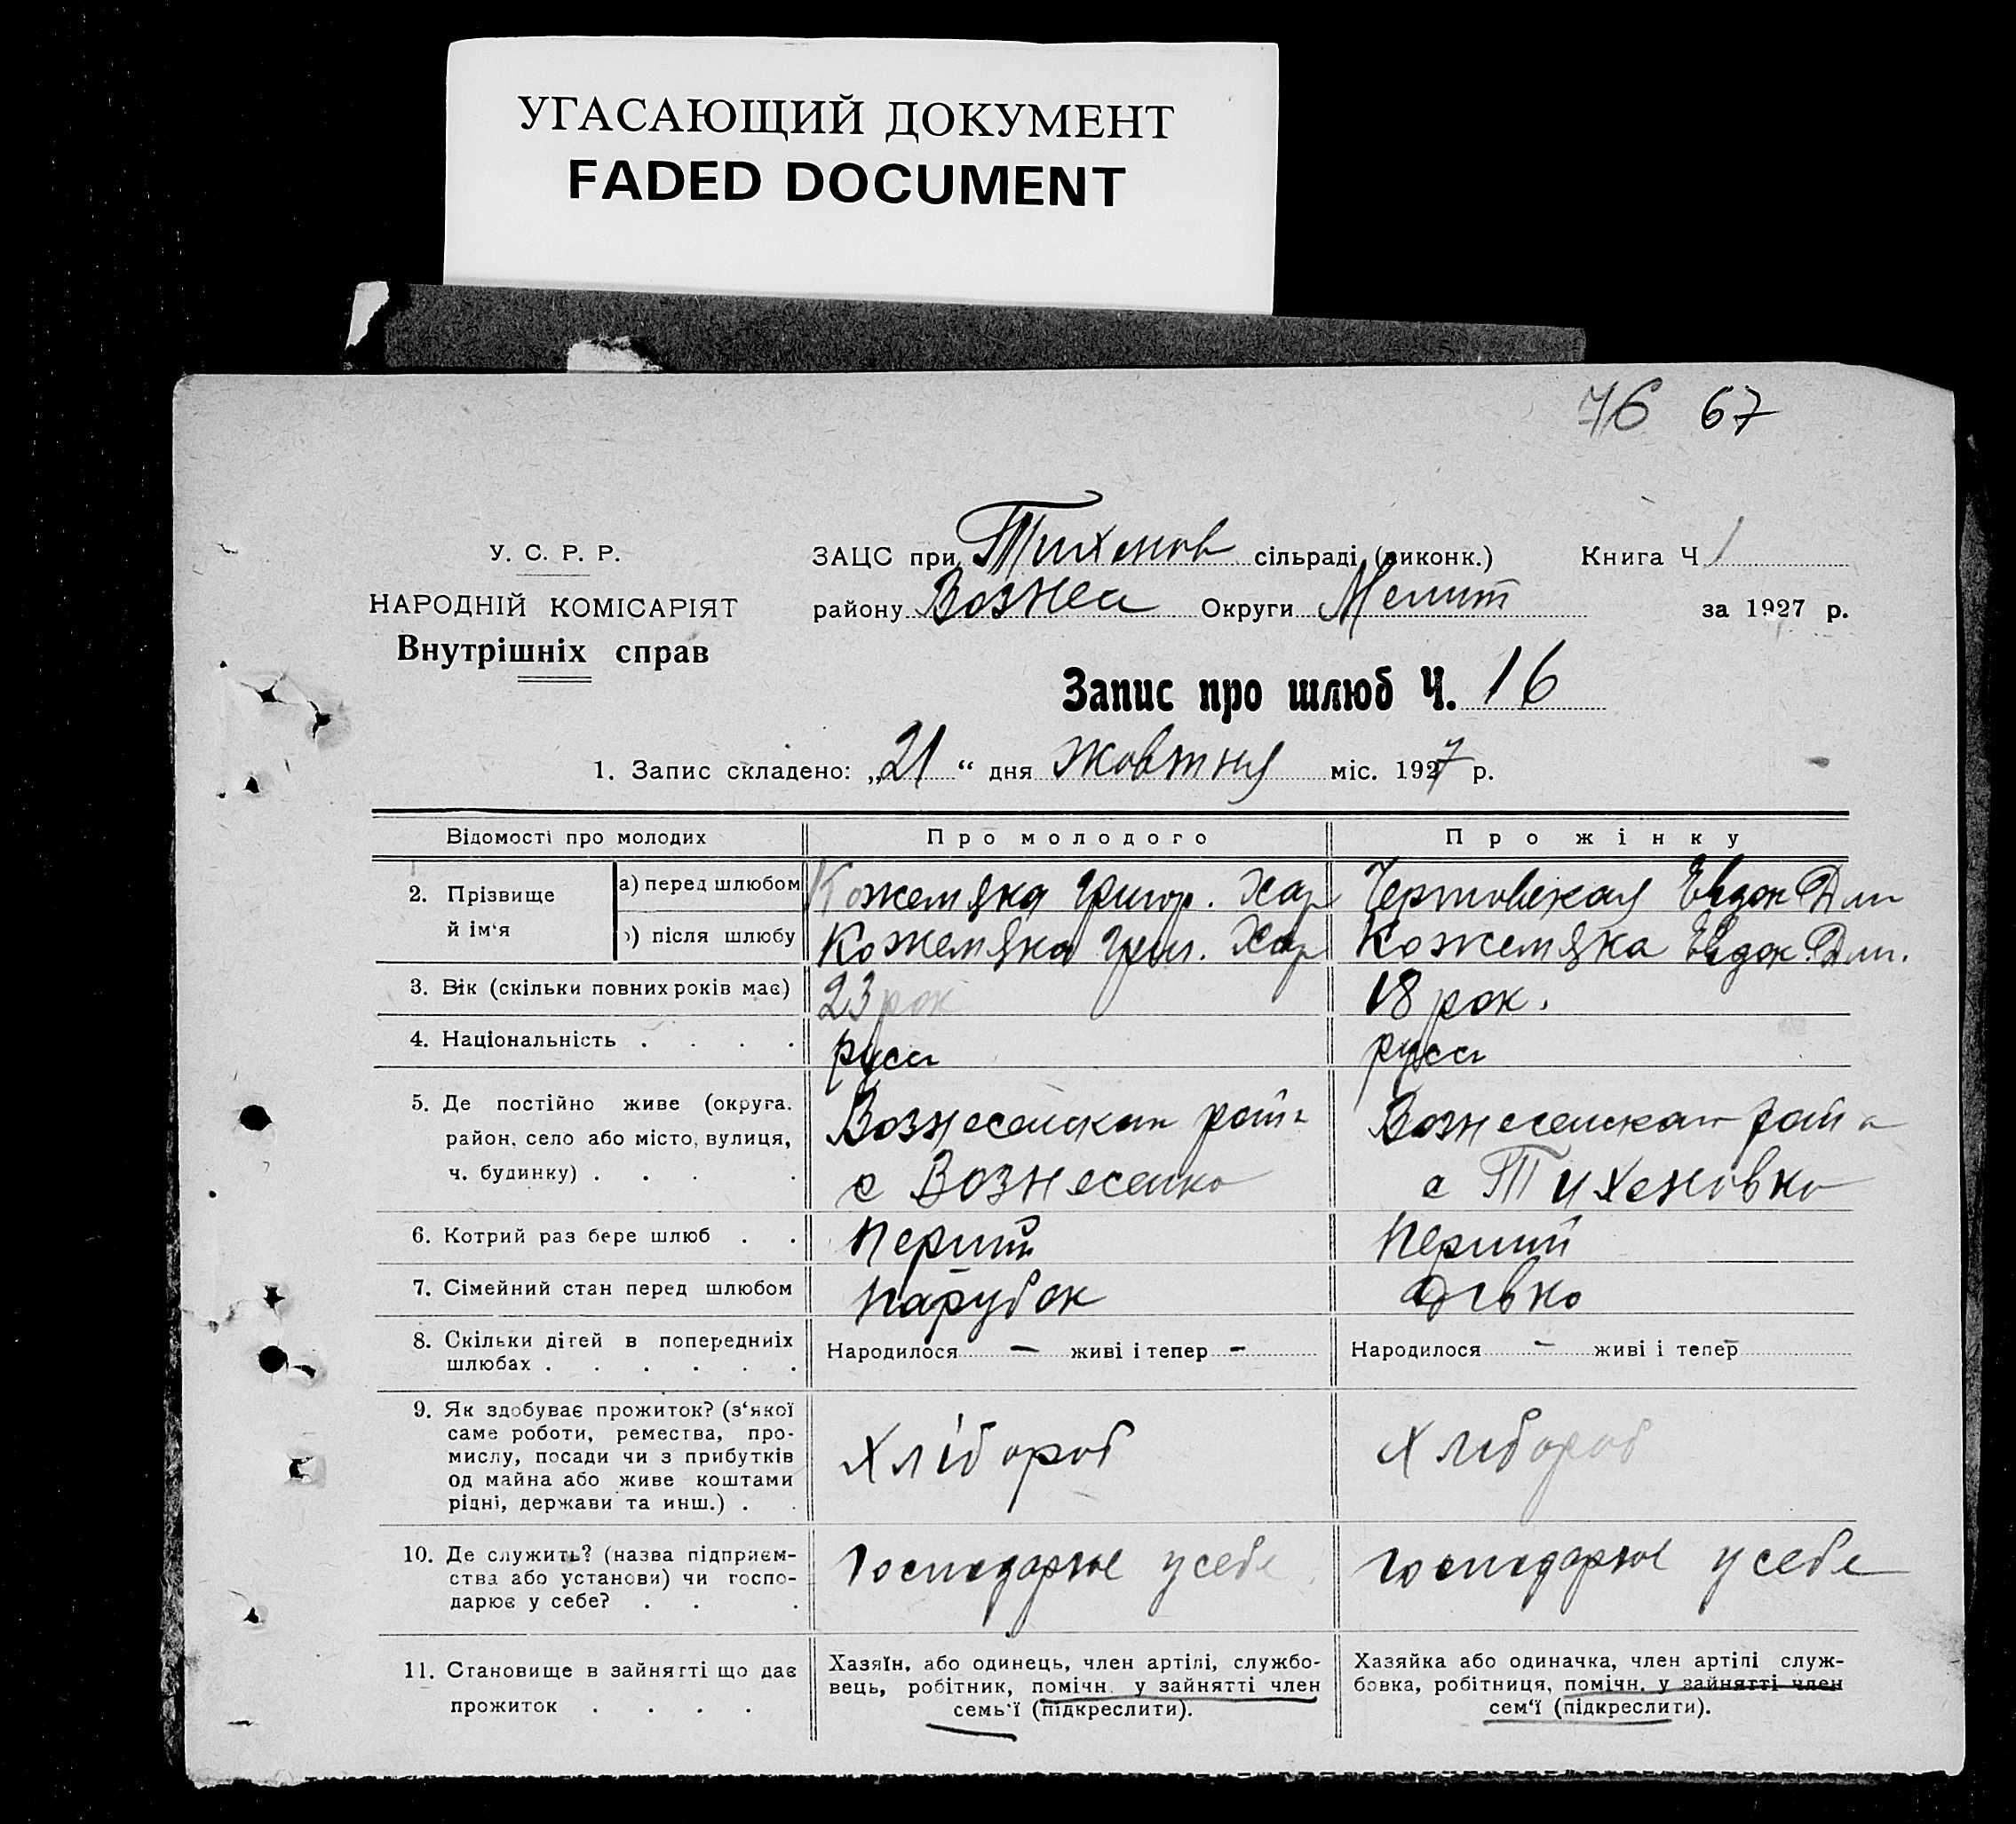 УГАСАЮЩИЙ ДОКУМЕНТ
FADED DOCUMENT
76 67
У. С. Р. Р.
НАРОДНІЙ КОМІСАРІЯТ
Внутрішніх справ
ЗАЦС при Тихонов сільраді (виконк.) Книга Ч 1
району Вознес Округи Мелит за 1927 р.
Запис про шлюб Ч. 16
1. Запис складено: „21“ дня жовтня міс. 1927 р.
Відомості про молодих Про молодого Про жінку
2. Прізвище й ім‘я
а) перед шлюбом Кожемяка Григор. Хар Чертовская Евдок Дми
б) після шлюбу Кожемяка Григ. Хар Кожемяка Евдок. Дми.
3. Вік (скільки повних років має) 23 рок 18 рок.
4. Національність . . . . руси руси
5. Де постійно живе (округа, район, село або місто, вулиця, ч. будинку) . . . .
Вознесенскаи райн
с Вознесенка
Вознесенскаи райн
с Тихоновка
6. Котрий раз бере шлюб . . перший перший
7. Сімейний стан перед шлюбом парубок дівка
8. Скільки дітей в попередниіх шлюбах . . . . . .
Народилося — живі і тепер —
Народилося — живі і тепер —
9. Як здобуває прожиток? (з‘якої
саме роботи, ремества, про-
мислу, посади чи з прибутків
од майна або живе коштами
рідні, держави та инш.) . .
хлібороб
хлибороб
10. Де служить? (назва підприєм-
ства або установи) чи госпо-
дарює у себе? . . .
господарює у себе
господарює у себе
11. Становище в зайнятті що дає
прожиток . . . .
Хазяїн, або одинець, член артілі, службо-
вець, робітник, помічн. у зайнятті член
семь‘ї (підкреслити).
Хазяйка або одиначка, член артілі служ-
бовка, робітниця, помічн. у зайнятті член
сем‘ї (підкреслити).